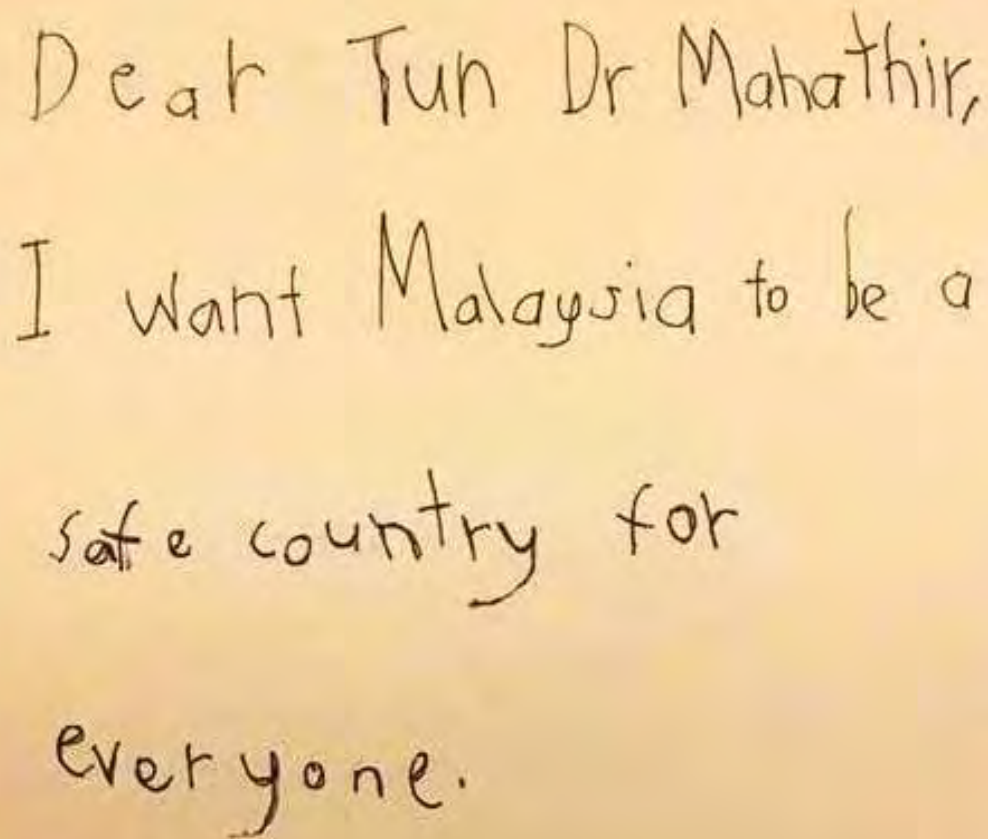 Dear Tun Dr Mahathir,
I want Malaysia to be a
safe country for
everyone.